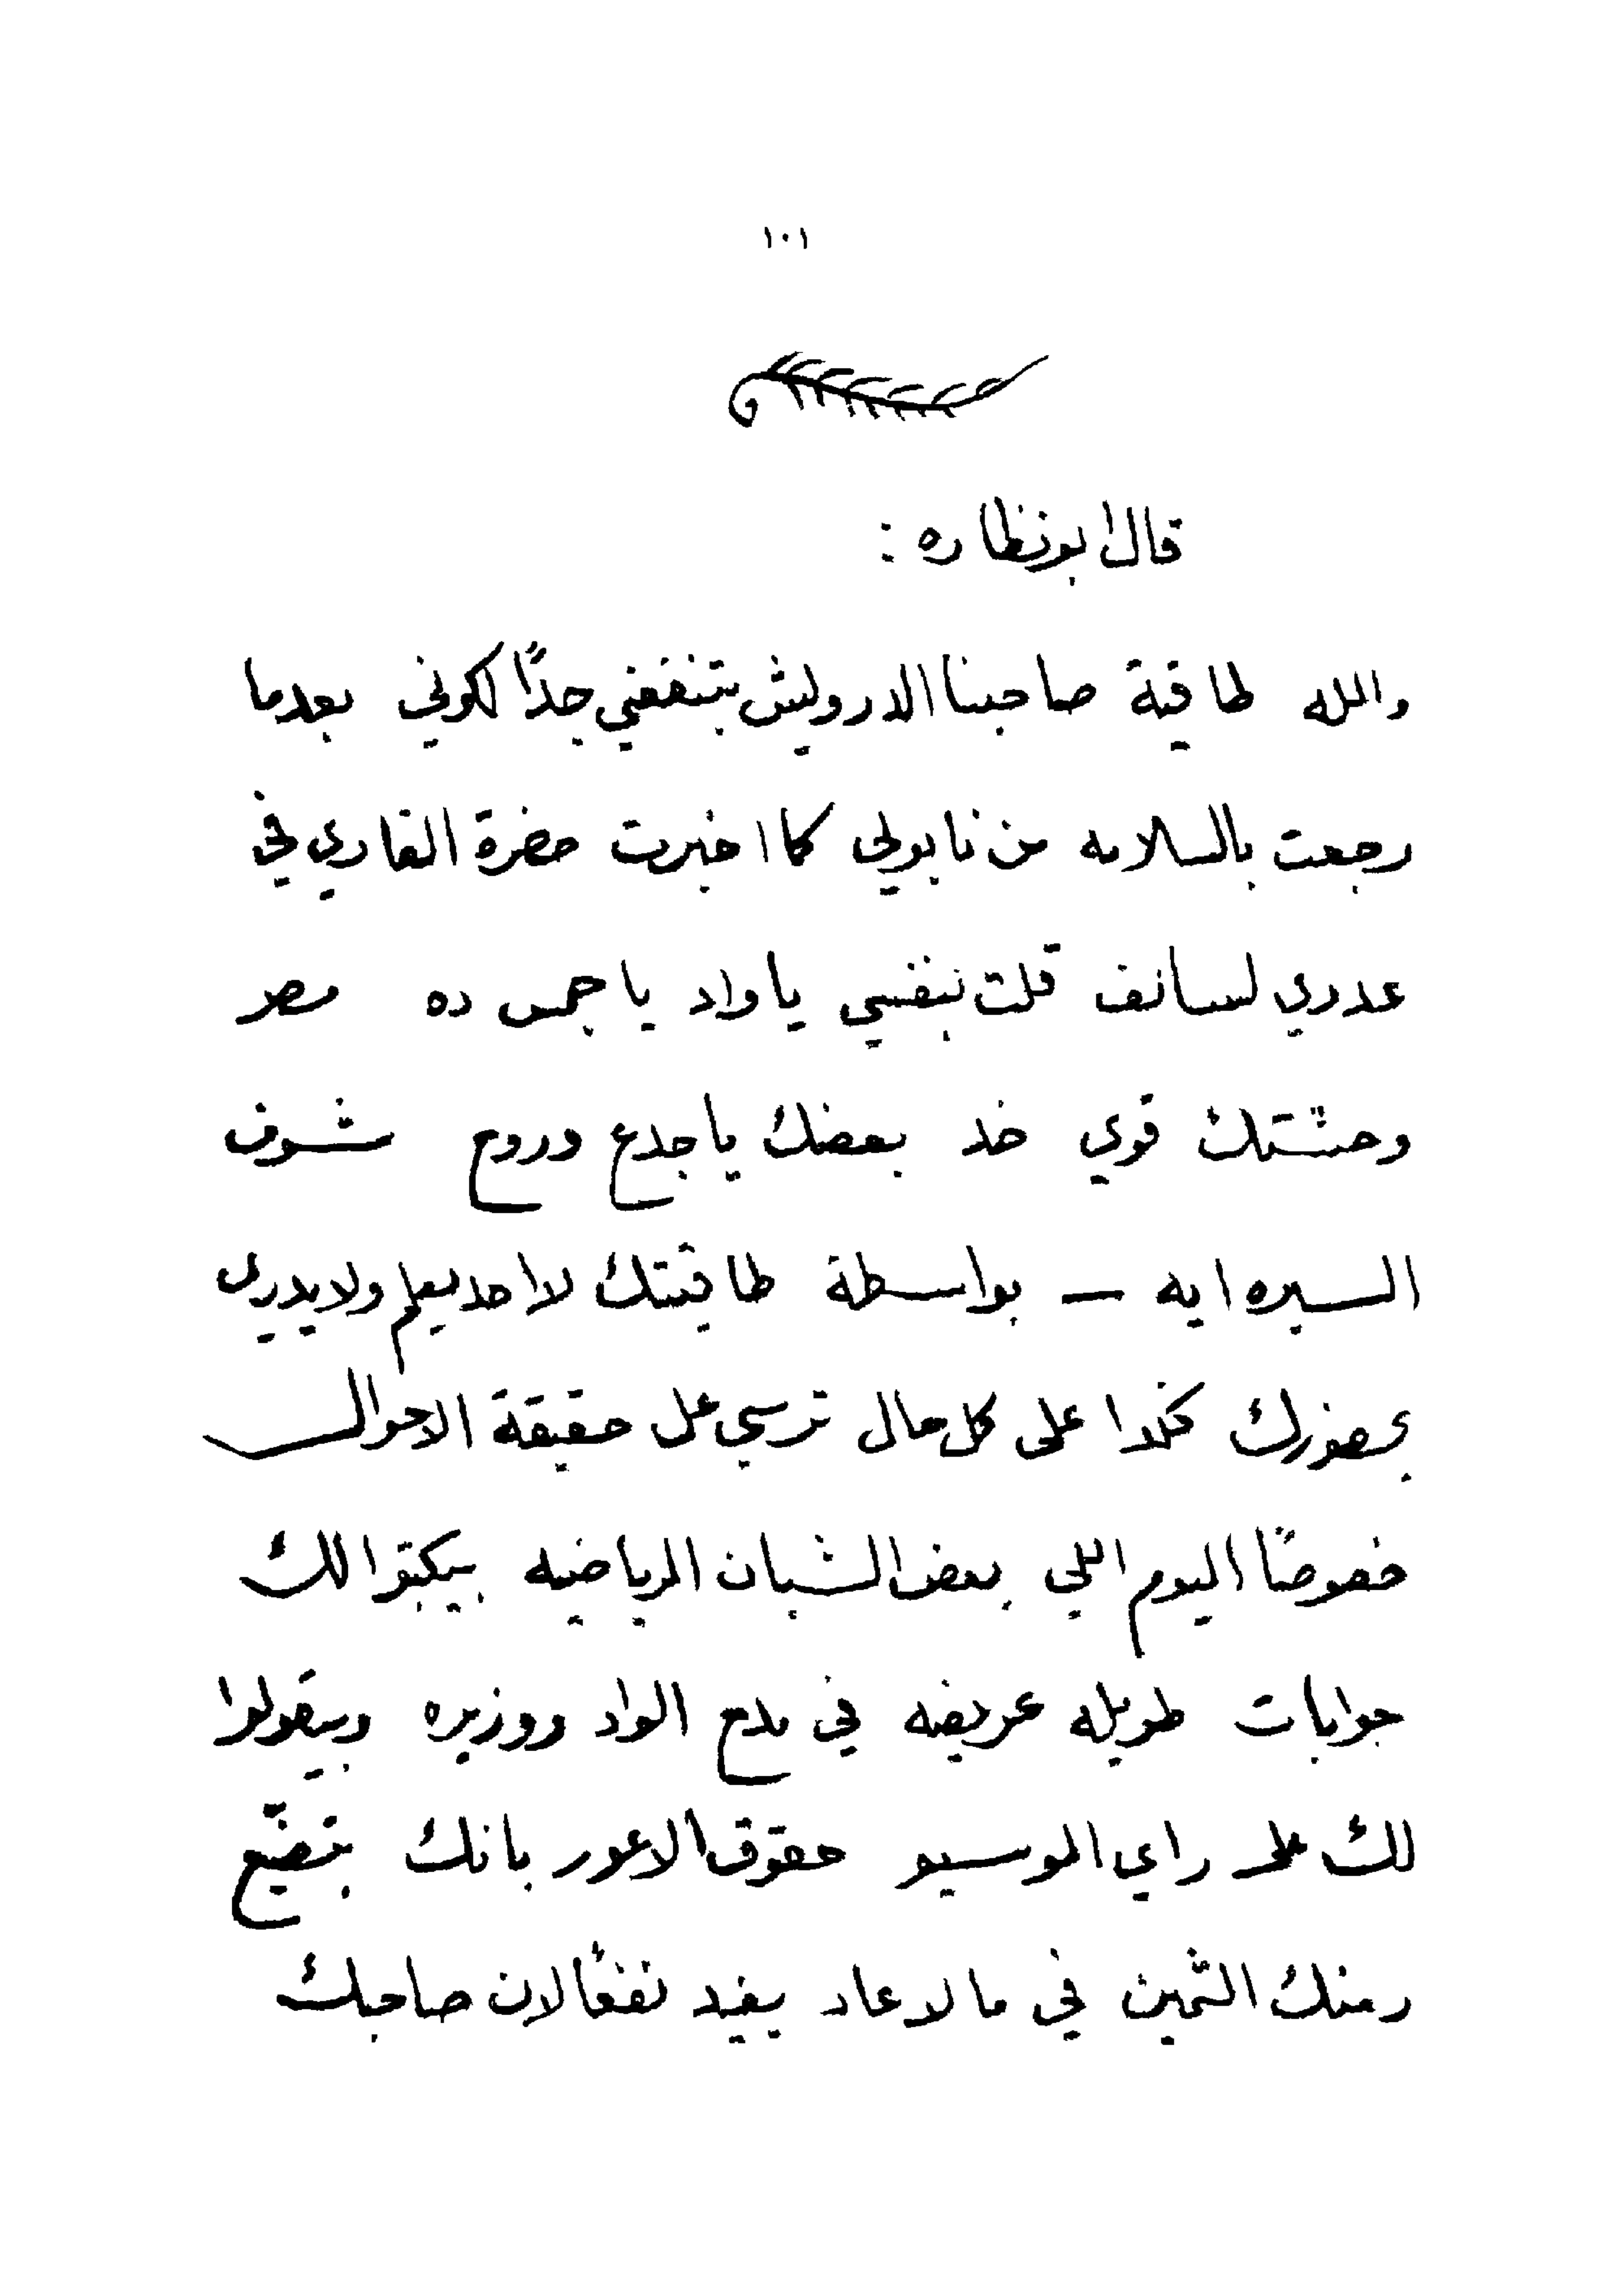 ١٠١
قال ابو نظاره :
والله طاقية صاحبنا الدرويش بتنفعني جدًا لكوني بعدما
رجعت بالسلامه من نابولي كما اخبرت حضرة القاري في
عددي لسانف قلت بنفسي يا واد يا جمس ده مصر
وحشتك قوي خد بعضك يا جدع وروح شوف
السيره ايه — بواسطة طاقيتك لا احد يعلم ولا يدري
بحضورك كخدا على كل حال ترسي على حقيقة الاحوال
خصوصًا اليوم اللي بعض الشبان الرياضيه بيكتبوا لك
جوابات طويله عريضه في مدح الواد ووزيره وبيقولوا
لك على راي الموسيو حقوق الاعور بانك بتضيّع
زمنك الثمين في ما لا عاد يفيد نفعًا لان صاحبك